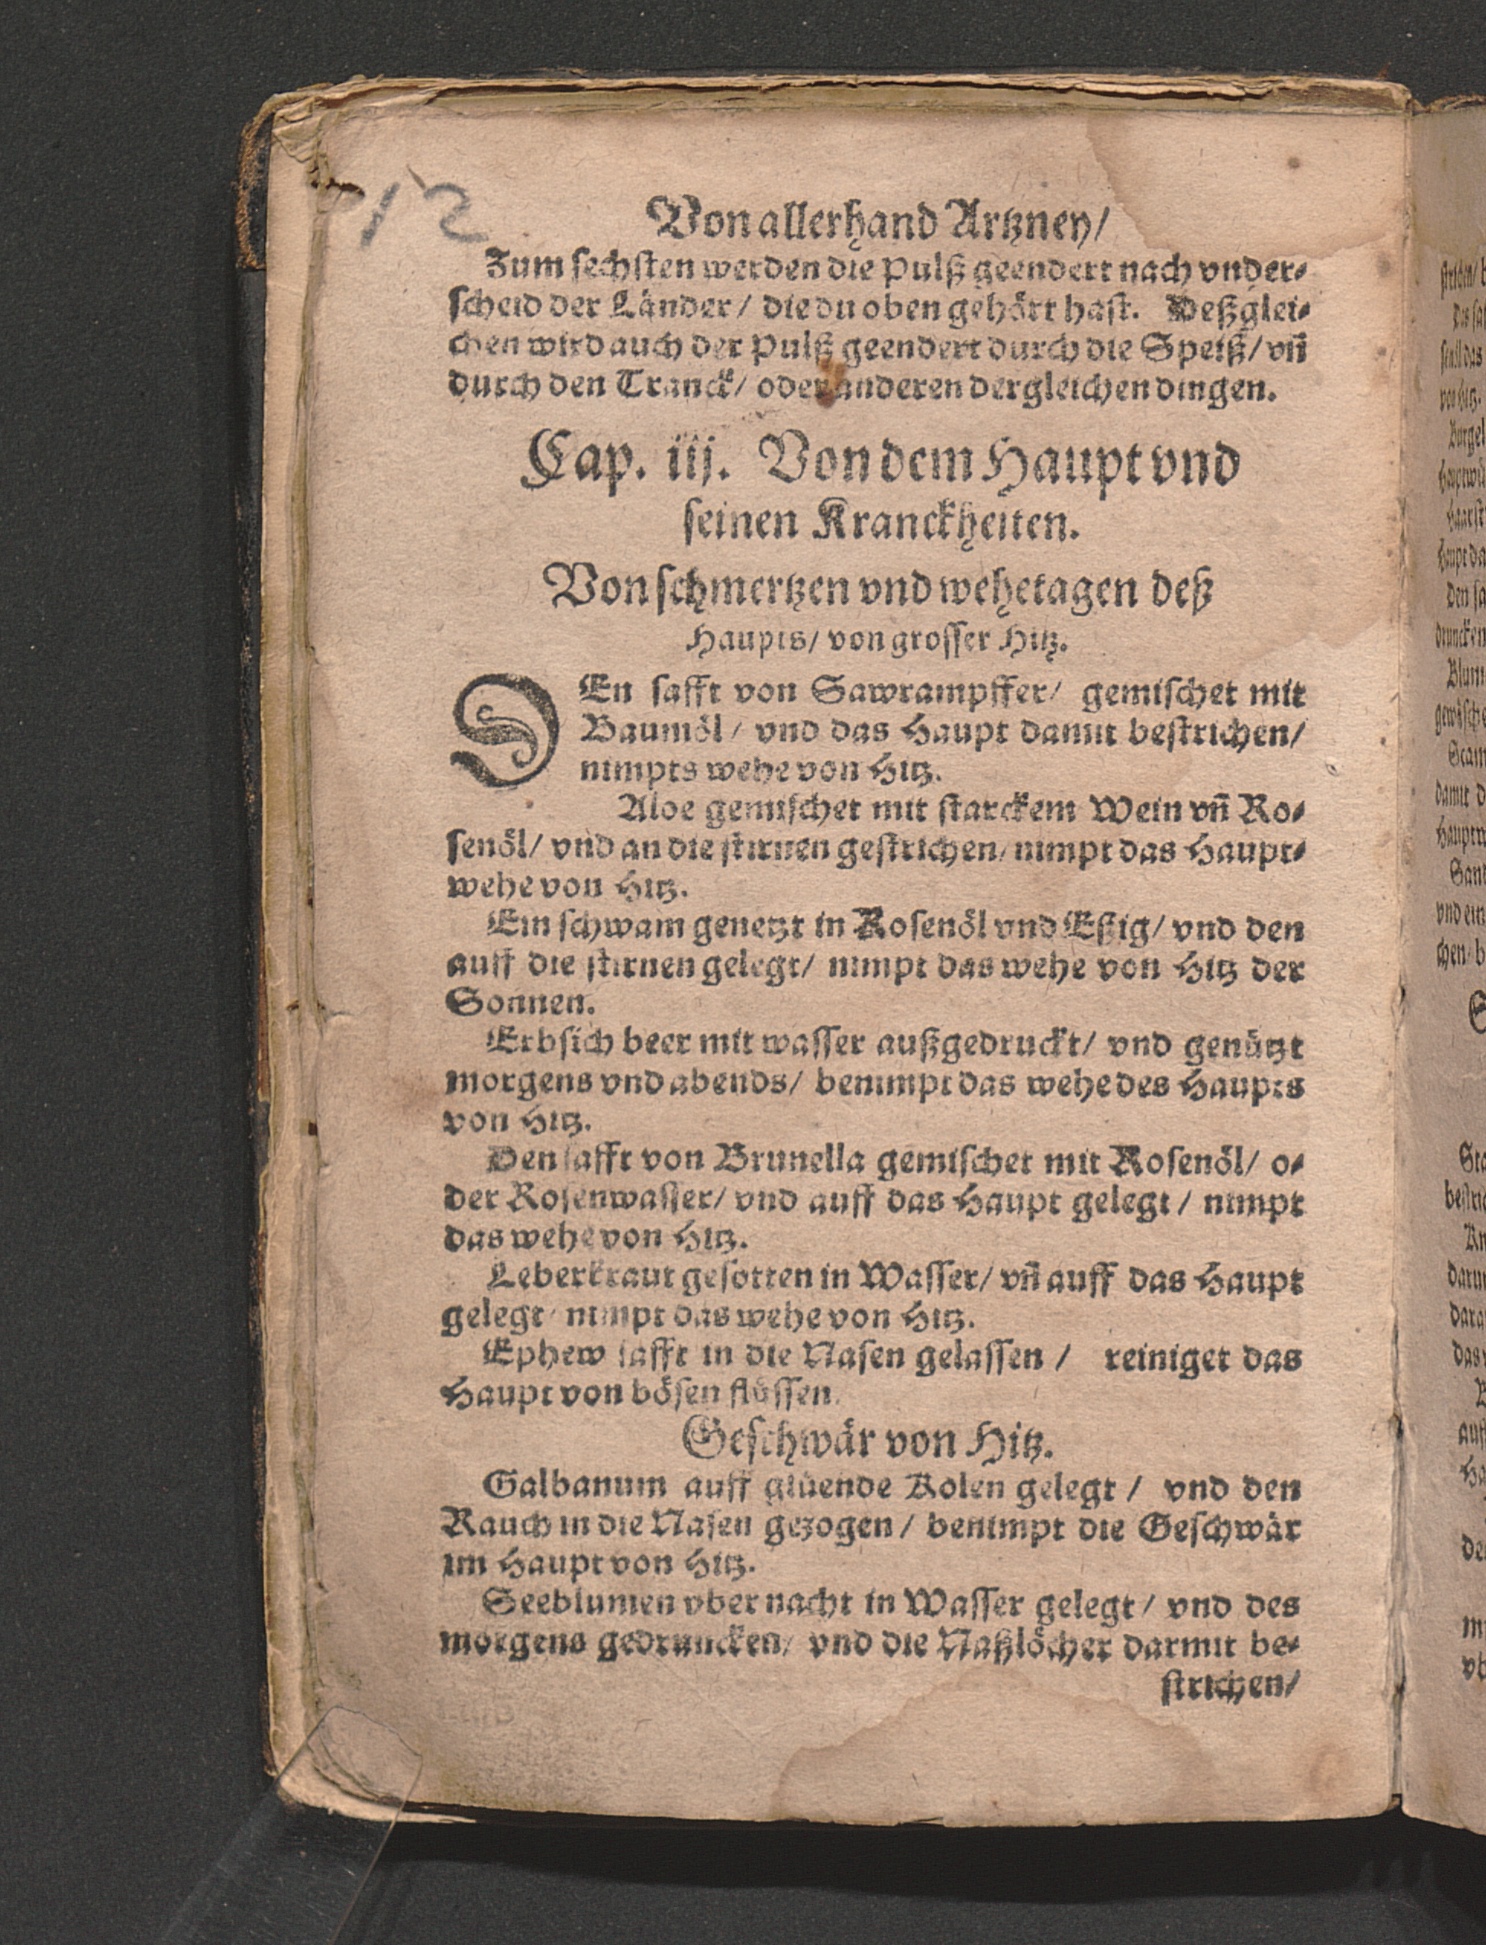 12
Von allerhand Artzney/
Zum sechsten werden die Pulß geendert nach vnder-
scheid der Länder/ die du oben gehört hast. Deßglei-
chen wird auch der Pulß geendert durch die Speiß/ vñ
durch den Tranck/ oder anderen dergleichen dingen.
Cap. iij. Von dem Haupt vnd
seinen Kranckheiten.
Von schmertzen vnd wehetagen deß
Haupts/ von grosser Hitz.
DEn safft von Sawrampffer/ gemischet mit
Baumöl/ vnd das Haupt damit bestrichen/
nimpts wehe von Hitz.
Aloe gemischet mit starckem Wein vñ Ro-
senöl/ vnd an die stirnen gestrichen/ nimpt das Haupt-
wehe von Hitz.
Ein schwam genetzt in Rosenöl vnd Eßig/ vnd den
auff die stirnen gelegt/ nimpt das wehe von Hitz der
Sonnen.
Erbsich beer mit wasser außgedruckt/ vnd genützt
morgens vnd abends/ benimpt das wehe des Haupts
von Hitz.
Den safft von Brunella gemischet mit Rosenöl/ o-
der Rosenwasser/ vnd auff das Haupt gelegt/ nimpt
das wehe von Hitz.
Leberkraut gesotten in Wasser/ vñ auff das Haupt
gelegt/ nimpt das wehe von Hitz.
Ephew safft in die Nasen gelassen/ reiniget das
Haupt von bösen flüssen.
Geschwär von Hitz.
Galbanum auff glüende Kolen gelegt/ vnd den
Rauch in die Nasen gezogen/ benimpt die Geschwär
im Haupt von Hitz.
Seeblumen vber nacht in Wasser gelegt/ vnd des
morgens gedruncken/ vnd die Naßlöcher darmit be-
strichen/